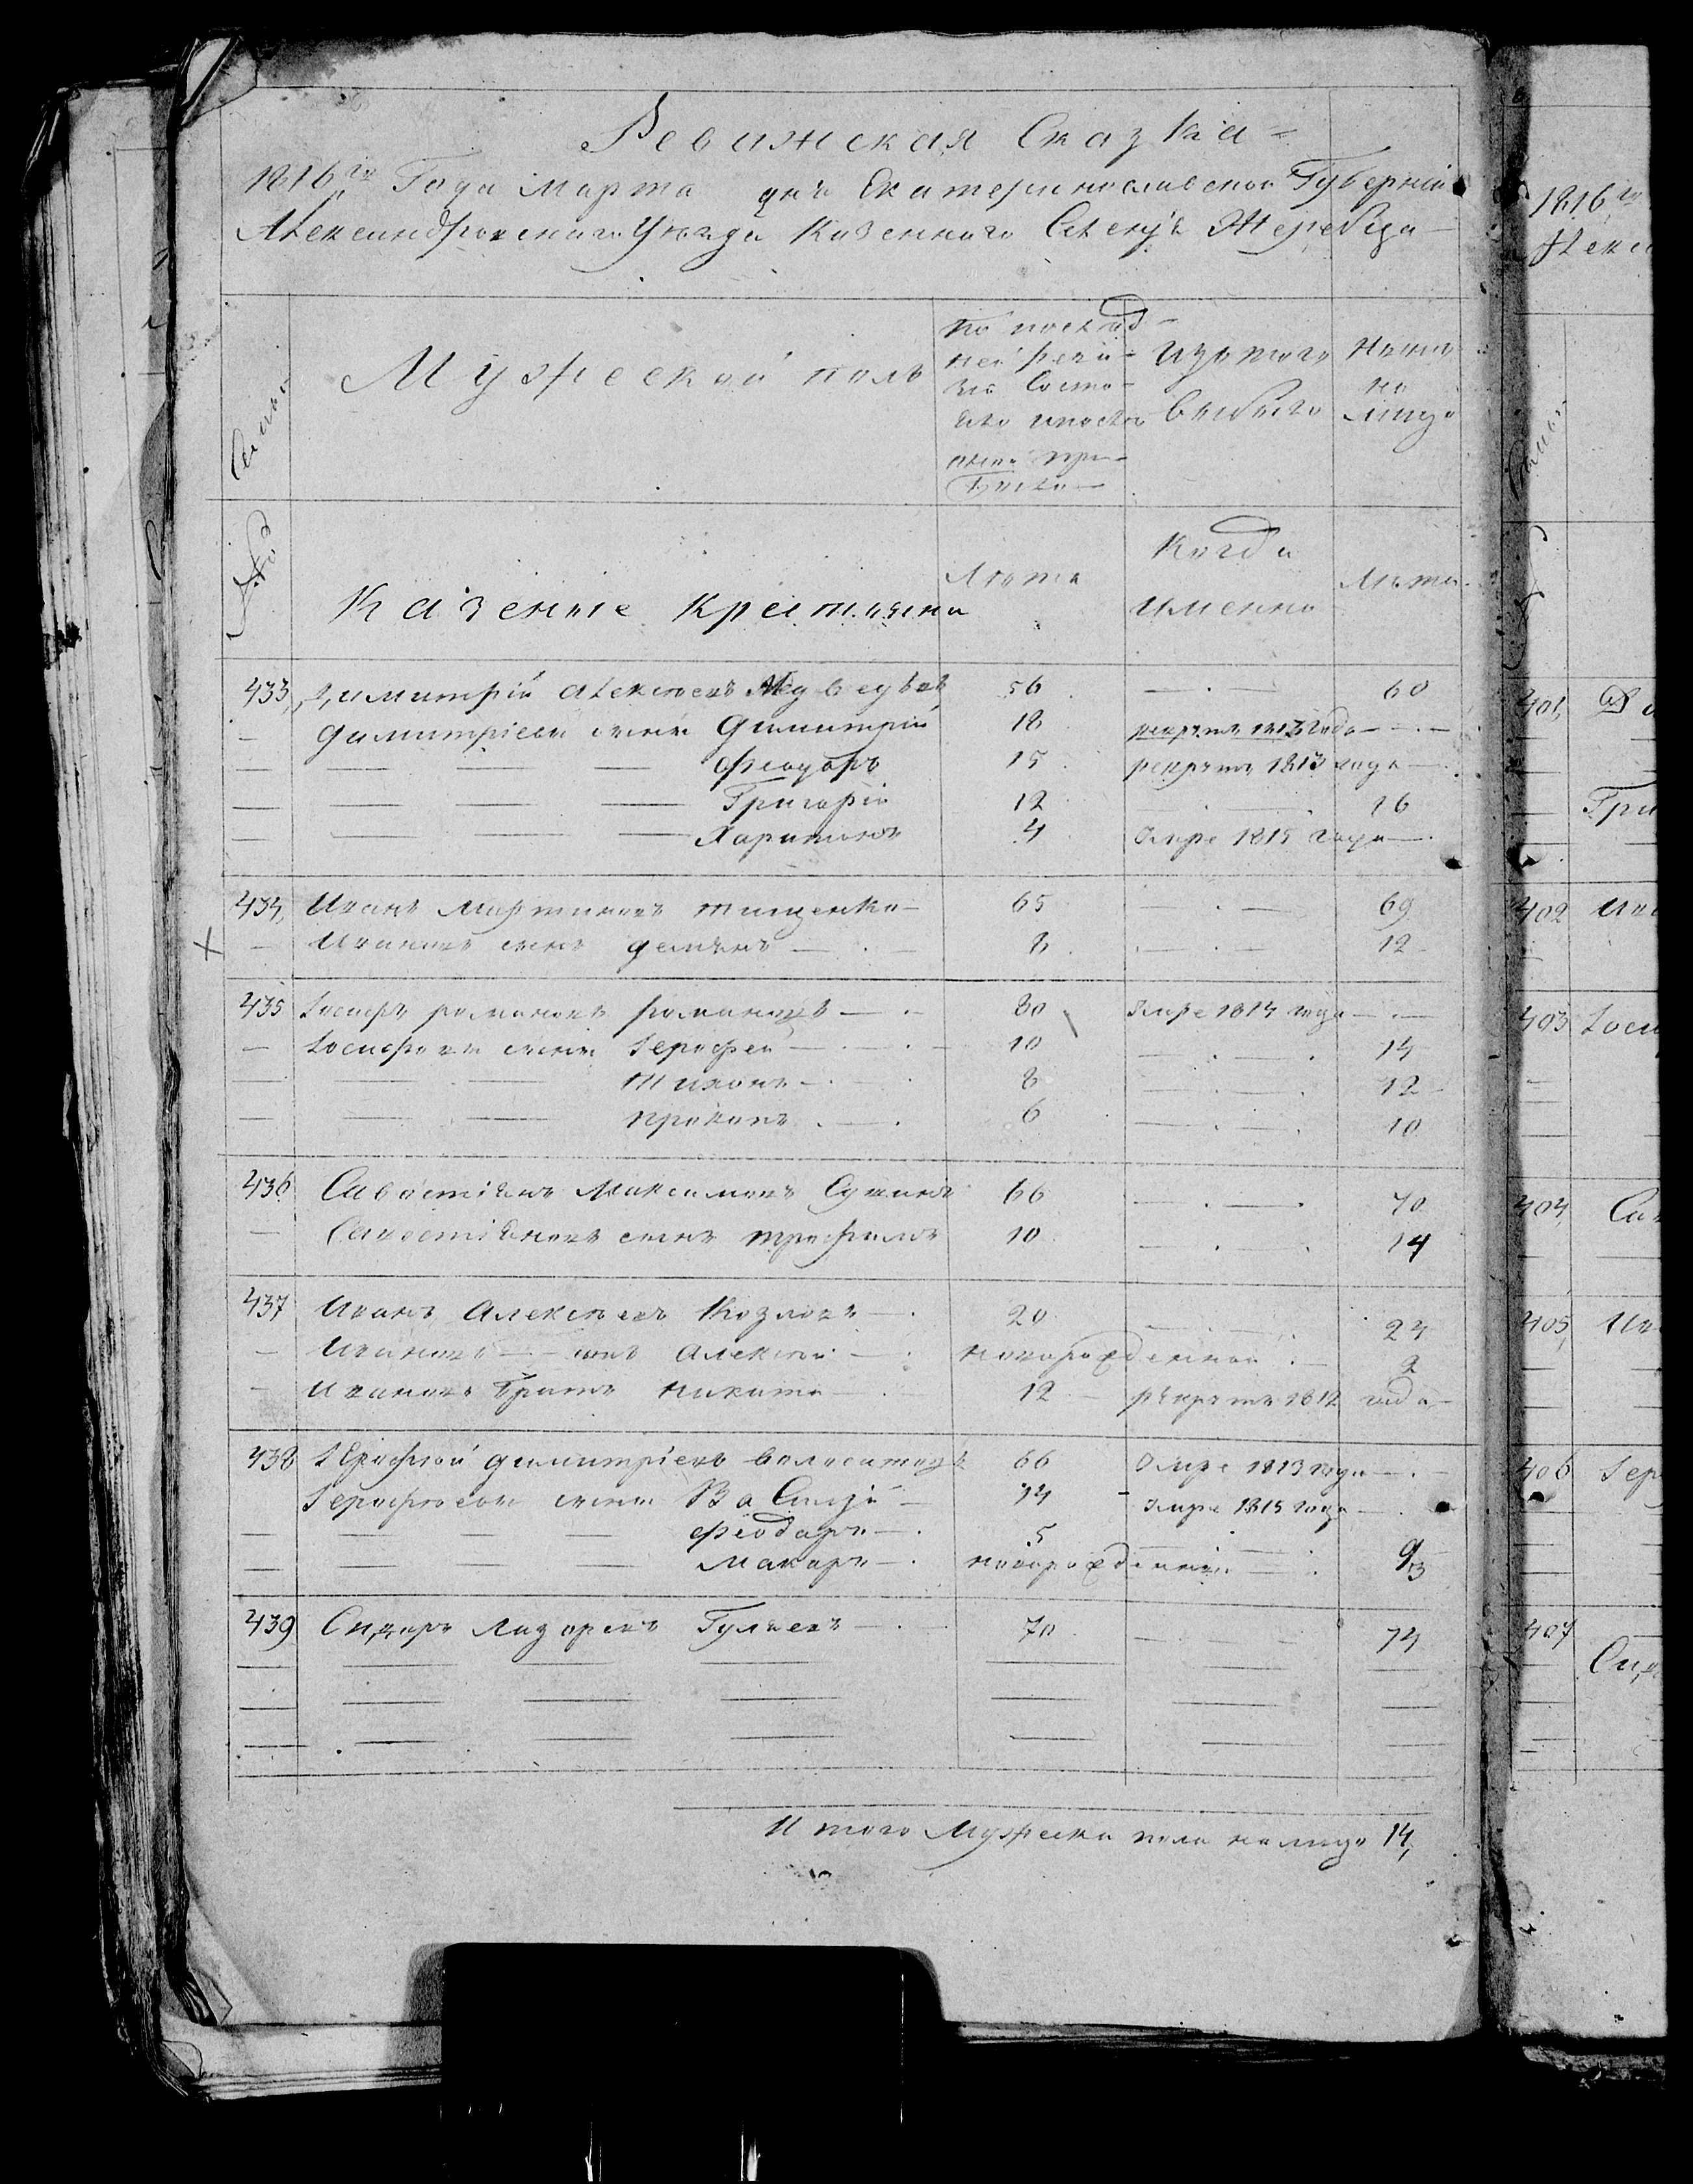 Ревижская Сказка
1816го Года Марта дня Екатеринославской Губерніи
Александровскаго Уезда Казенного Селенія Жеребца
Семьи
Мужеской полъ
По послѣд-
ней реви-
зіи состо-
яло и послѣ
оной при-
было
Изъ того
выбыло
Ныне
на
лицо
№
Казенные крестьяне
Лѣта
Когда
именно
Лѣта
433, Димитрій Алексѣевъ Медведевъ 56 60
Димитріевы сыны Димитрій 18 рекрутъ 1813 года
Феодоръ 15 рекрутъ 1813 года
Григорій 12 16
Харитонъ 4 Умре 1815 года
434, Иванъ Мартиновъ Тищенко 65 69
Ивановъ сынъ Демянъ 8 12
435 Іосифъ Романовъ 80 Умре 1814 года
Іосифовы сыны Іерофей 10 14
Тихонъ 8 12
Прокопъ 6 10
436 Савостіянъ Максимовъ 66 70
Савостіяновъ сынъ Трофимъ 10 14
437 Иванъ Алексѣевъ Козловъ 20 24
Ивановъ сынъ Алексѣй новорожденной 2
Ивановъ братъ Никита 12 рекрутъ 1812 года
438 Іерофѣй Димитріевъ 66 Умре 1813 года
Іерофѣевы сыны Василій 14 Умре 1815 года
Феодоръ 5 9
Макаръ новорожденній 3
439 Сидоръ Лазоревъ Гуляевъ 70 74
Итого Мужеска пола налицо 14,
1816го
401,
402
403
404,
405,
406
407